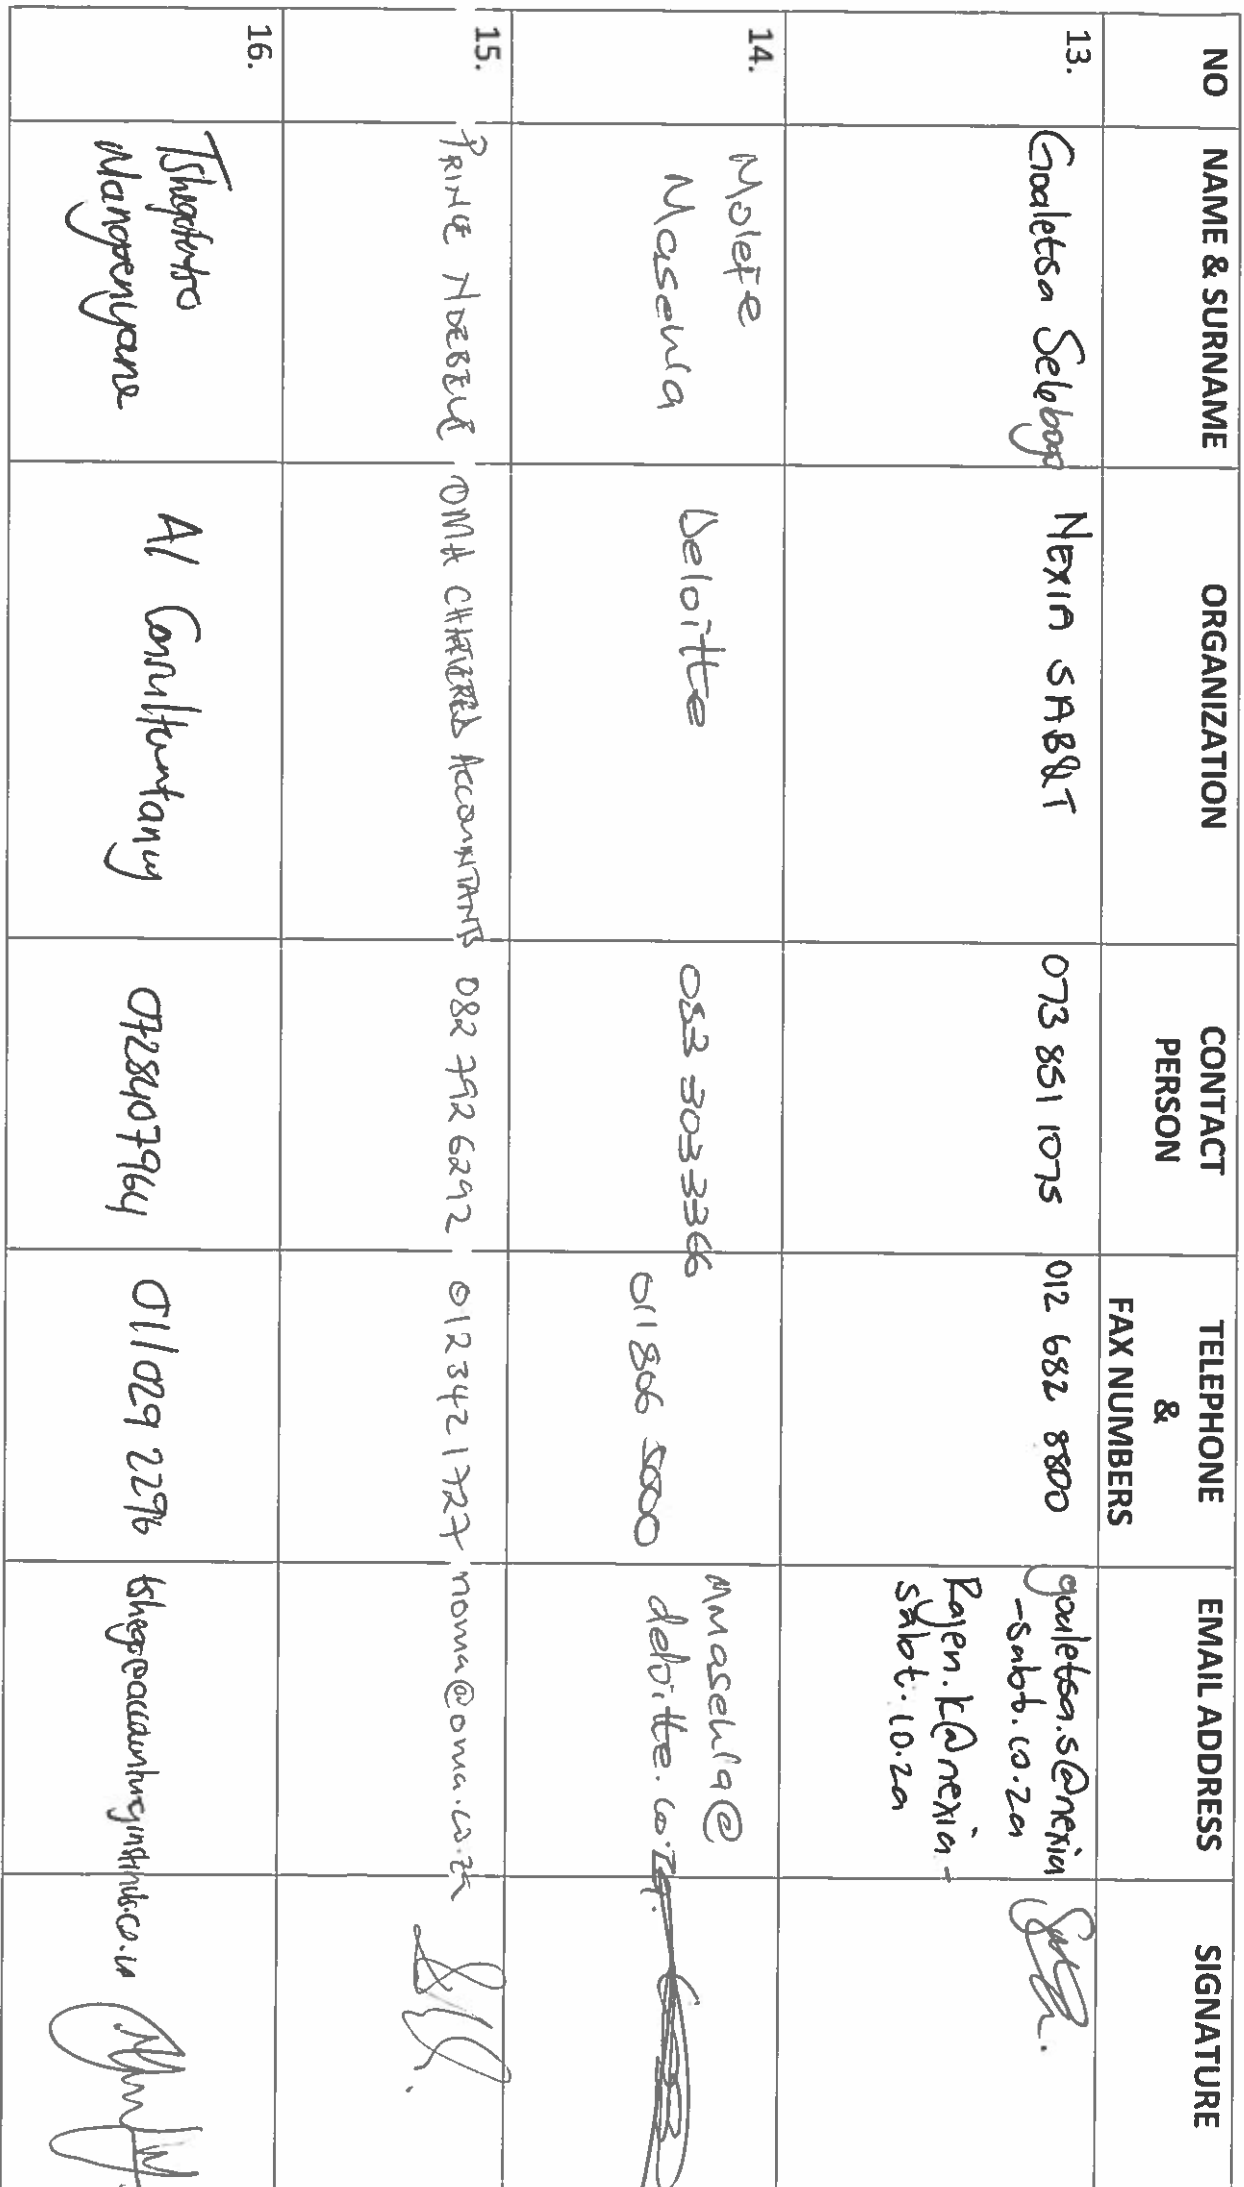 NO NAME & SURNAME ORGANIZATION CONTACT PERSON TELEPHONE & FAX NUMBERS EMAIL ADDRESS SIGNATURE
13. Goaletsa NEXIA SAB&T 073 851 1075 012 682 8800 goaletsa.s@nexia
-sabt.co.za
Rajen.k@nexia-
sabt.co.za
14. Molefe
Masehla Deloitte 083 303 3366 011 806 5000 Mmasehla@
deloitte.co.za.
15. PRINCE NDEBELE OMA CHARTERED ACCOUNTANTS 082 792 6292 012 342 1727 noma@oma.co.za
16. Tshegofatso
Mangenyane AI 0728407964 011 029 2296